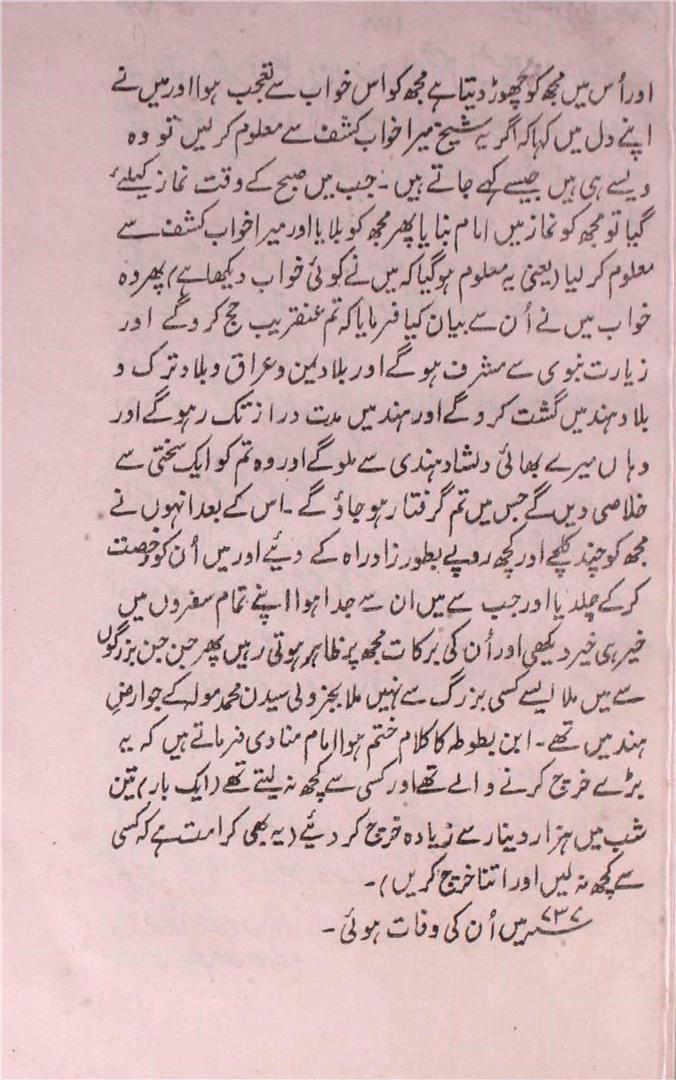 اور اُس میں مجھ کو چھوڑ دیتا ہے مجھ کو اس خواب سے تعجب ہوا اور میں نے
اپنے دل میں کہا کہ اگر یہ شیخ میرا خواب کشف سے معلوم کر لیں تو وہ
ویسے ہی ہیں جیسے کہے جاتے ہیں ۔ جب میں صبح کے وقت نماز کیلئے
گیا تو مجھ کو نماز میں امام بنایا پھر مجھ کو بلایا اور میرا خواب کشف سے
معلوم کر لیا (یعنی یہ معلوم ہو گیا کہ میں نے کوئی خواب دیکھا ہے) پھر وہ
خواب میں نے اُن سے بیان کیا فرمایا کہ تم عنقریب حج کرو گے اور
زیارت نبوی سے مشرف ہو گے اور بلاد یمن و عراق و بلاد ترک و
بلاد ہند میں گشت کرو گے اور ہند میں مدت دراز تک رہو گے اور
وہاں میرے بھائی دلشاد ہندی سے ملو گے اور وہ تم کو ایک سختی سے
خلاصی دیں گے جس میں تم گرفتار ہو جاؤ گے ۔ اس کے بعد انہوں نے
مجھ کو چند کلچے اور کچھ روپے بطور زاد راہ کے دیئے اور میں اُن کو رخصت
کر کے چلدیا اور جب سے میں ان سے جدا ہوا اپنے تمام سفروں میں
خیر ہی خیر دیکھی اور اُن کی برکات مجھ پر ظاہر ہوتی رہیں پھر جن جن بزرگوں
سے میں ملا ایسے کسی بزرگ سے نہیں ملا بجز ولی سیدن محمد مولہ کے جو ارض
ہند میں تھے ۔ ابن بطوطہ کا کلام ختم ہوا امام مناوی فرماتے ہیں کہ یہ
بڑے خرچ کرنے والے تھے اور کسی سے کچھ نہ لیتے تھے (ایک بار) تین
شب میں ہزار دینار سے زیادہ خرچ کر دیئے (یہ بھی کرامت ہے کہ کسی
سے کچھ نہ لیں اور اتنا خرچ کریں) ۔
۷۳۷؁ میں اُن کی وفات ہوئی ۔